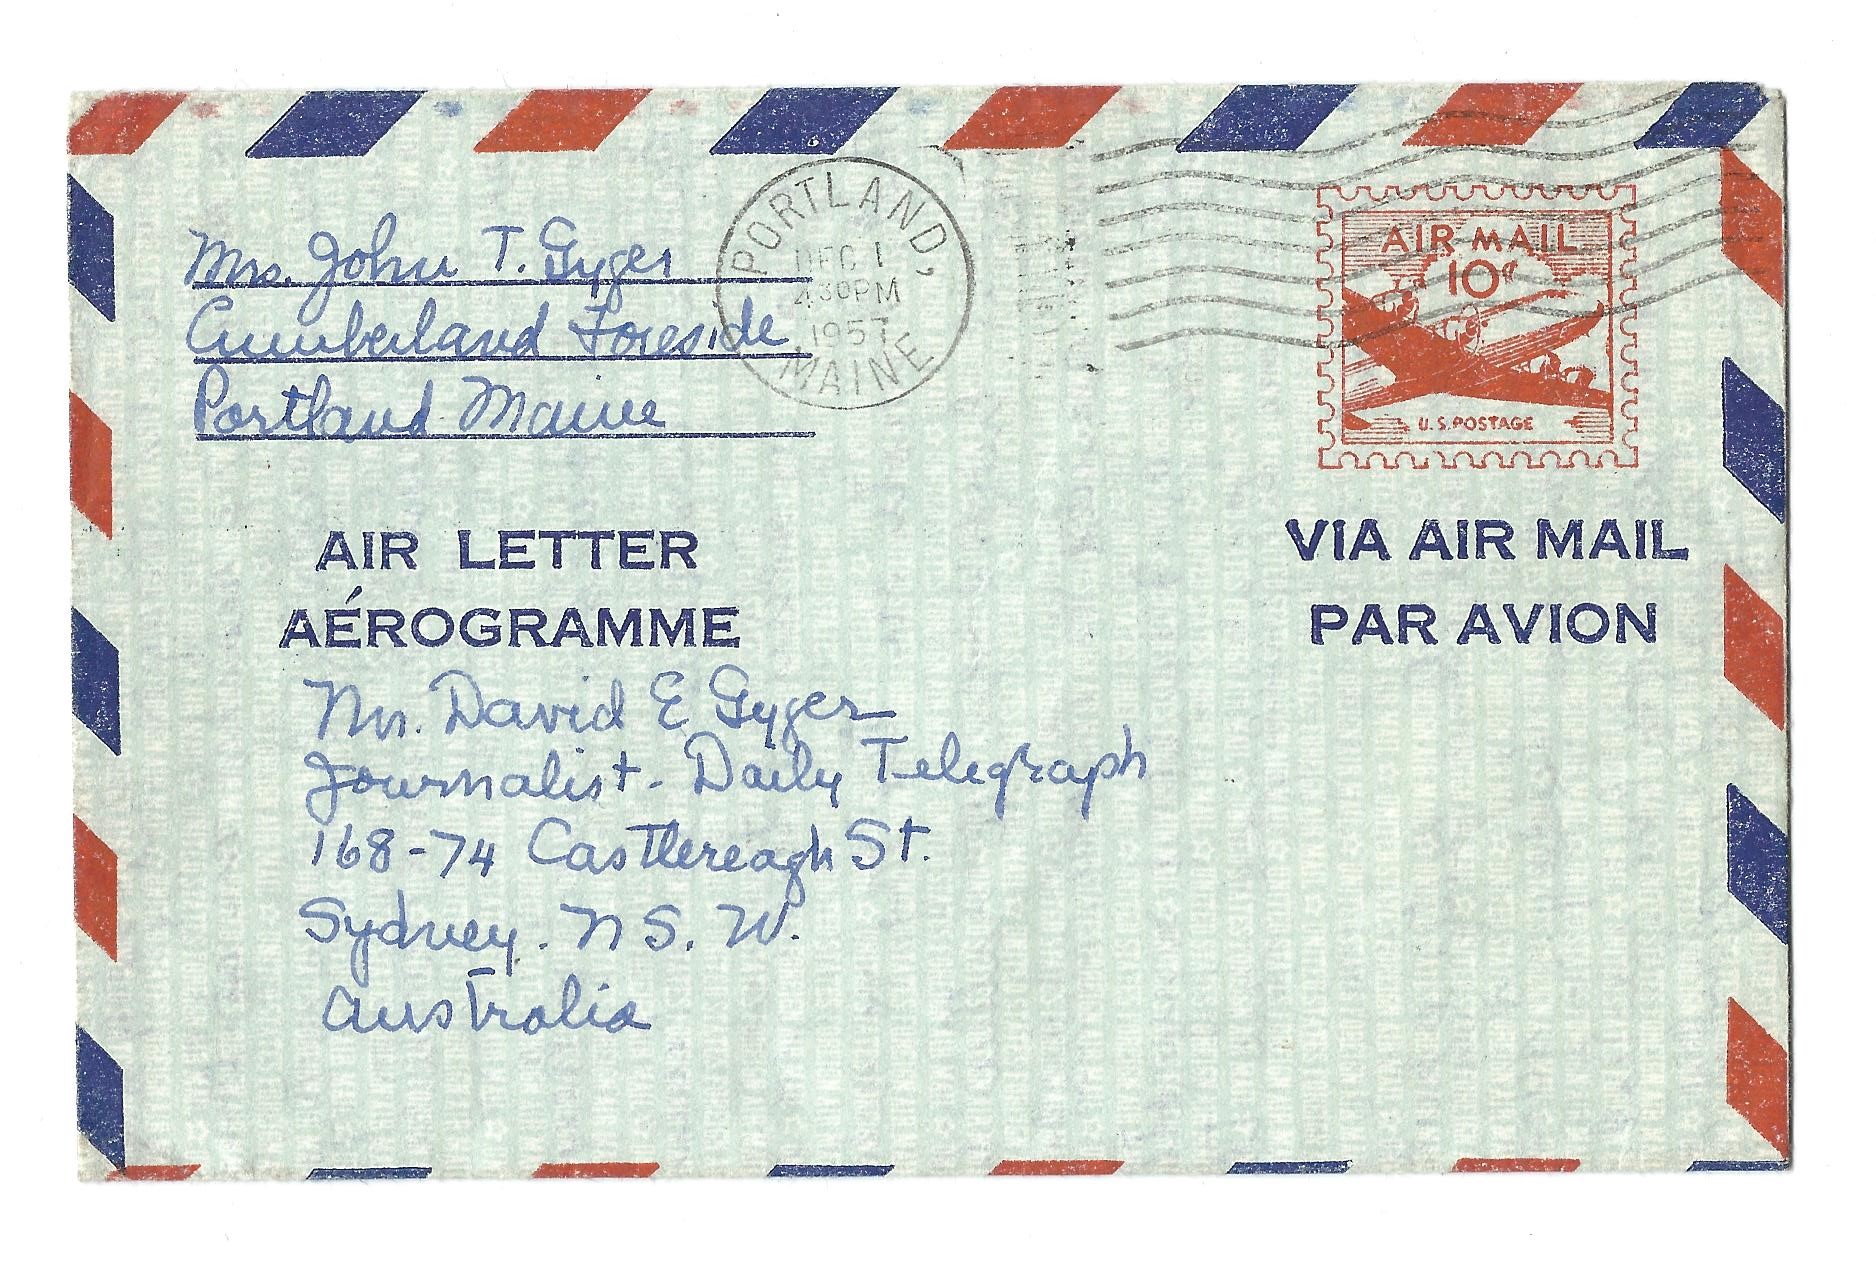 Mrs. John T. Gyger
Cumberland Foreside
Portland Maine
PORTLAND,
DEC 1
4 30 PM
1957
MAINE
AIR MAIL
10¢
U.S. POSTAGE
AIR LETTER
AÉROGRAMME
VIA AIR MAIL
PAR AVION
Mr. David E Gyger
Journalist - Daily Telegraph
168-74 Castlereagh St.
Sydney. N S. W.
Australia